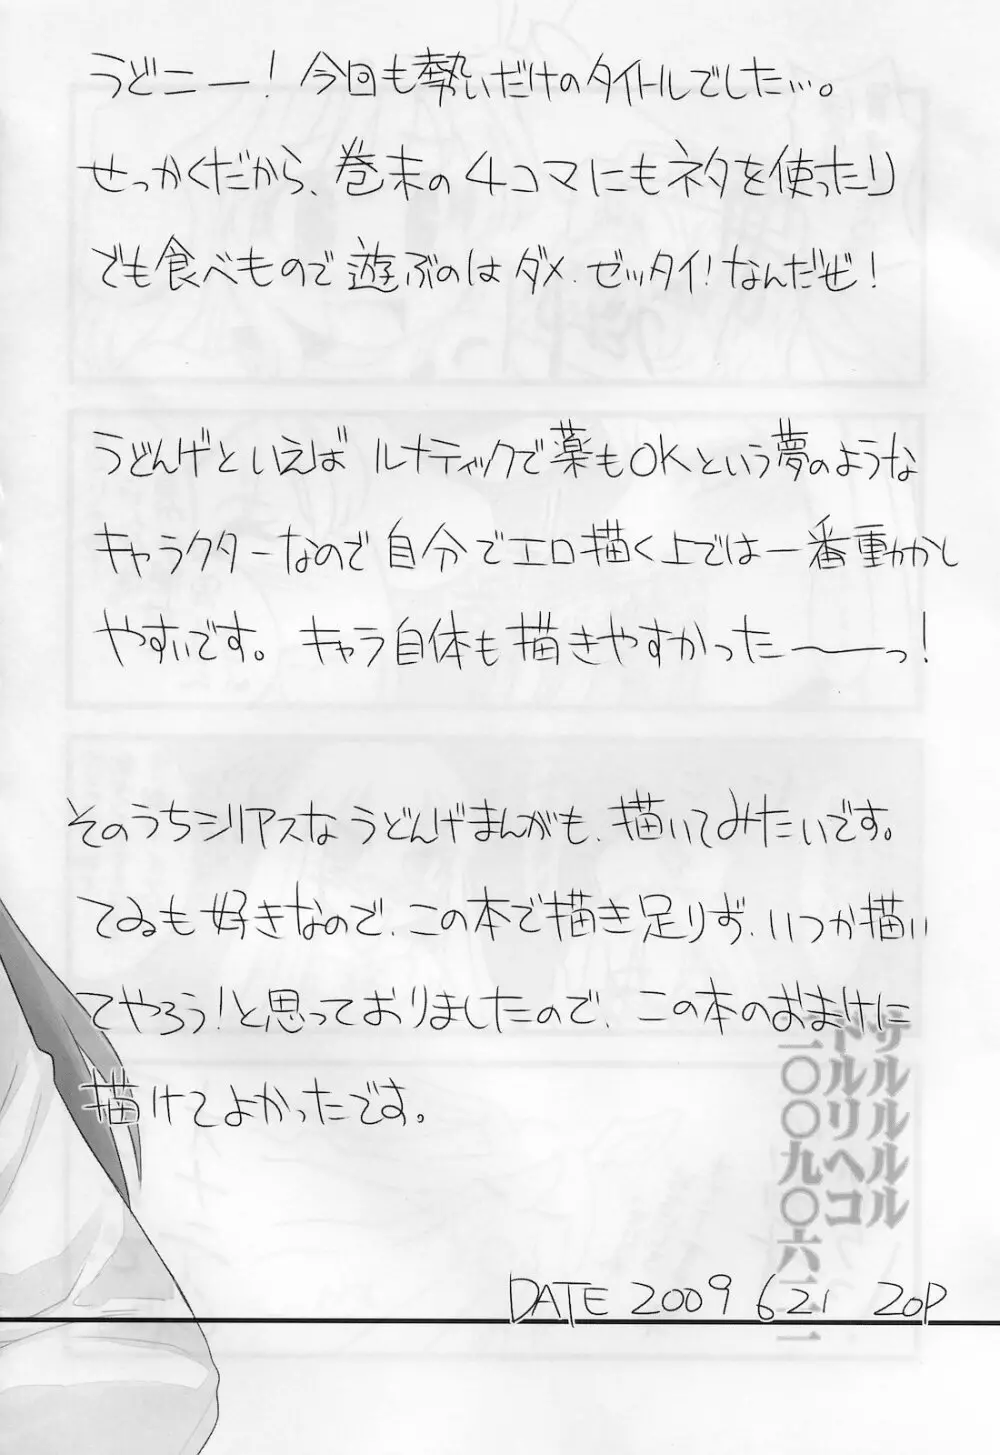 うどニー！今回も勢いだけのタイトルでした…。
せっかくだから、巻末の4コマにもネタを使ったり
でも食べもので遊ぶのはダメ、ゼッタイ！なんだぜ！
うどんげといえばルナティックで薬もOKという夢のような
キャラクターなので自分でエロ描く上では一番動かし
やすいです。キャラ自体も描きやすかった〜ーっ！
そのうちシリアスなうどんげまんがも、描いてみたいです。
てゐも好きなので、この本で描き足りず、いつか描い
てやろう！と思っておりましたので、この本のおまけに
描けてよかったです。
DATE 2009 6 21 ZOP